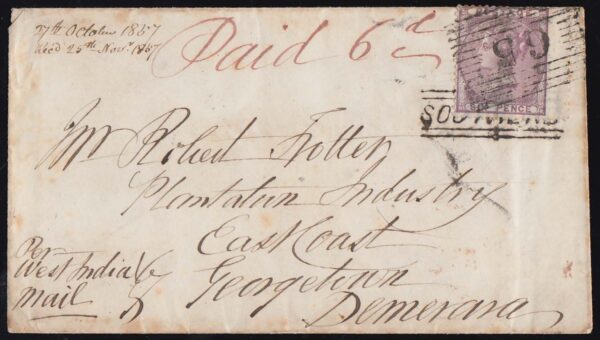 27th October 1857
Recd 25th Novr. 1857
Paid 6d
SIX PENCE
Mr Robert Trotter
Plantation Industry
East Coast
Georgetown
Demerara
Per
West India
Mail